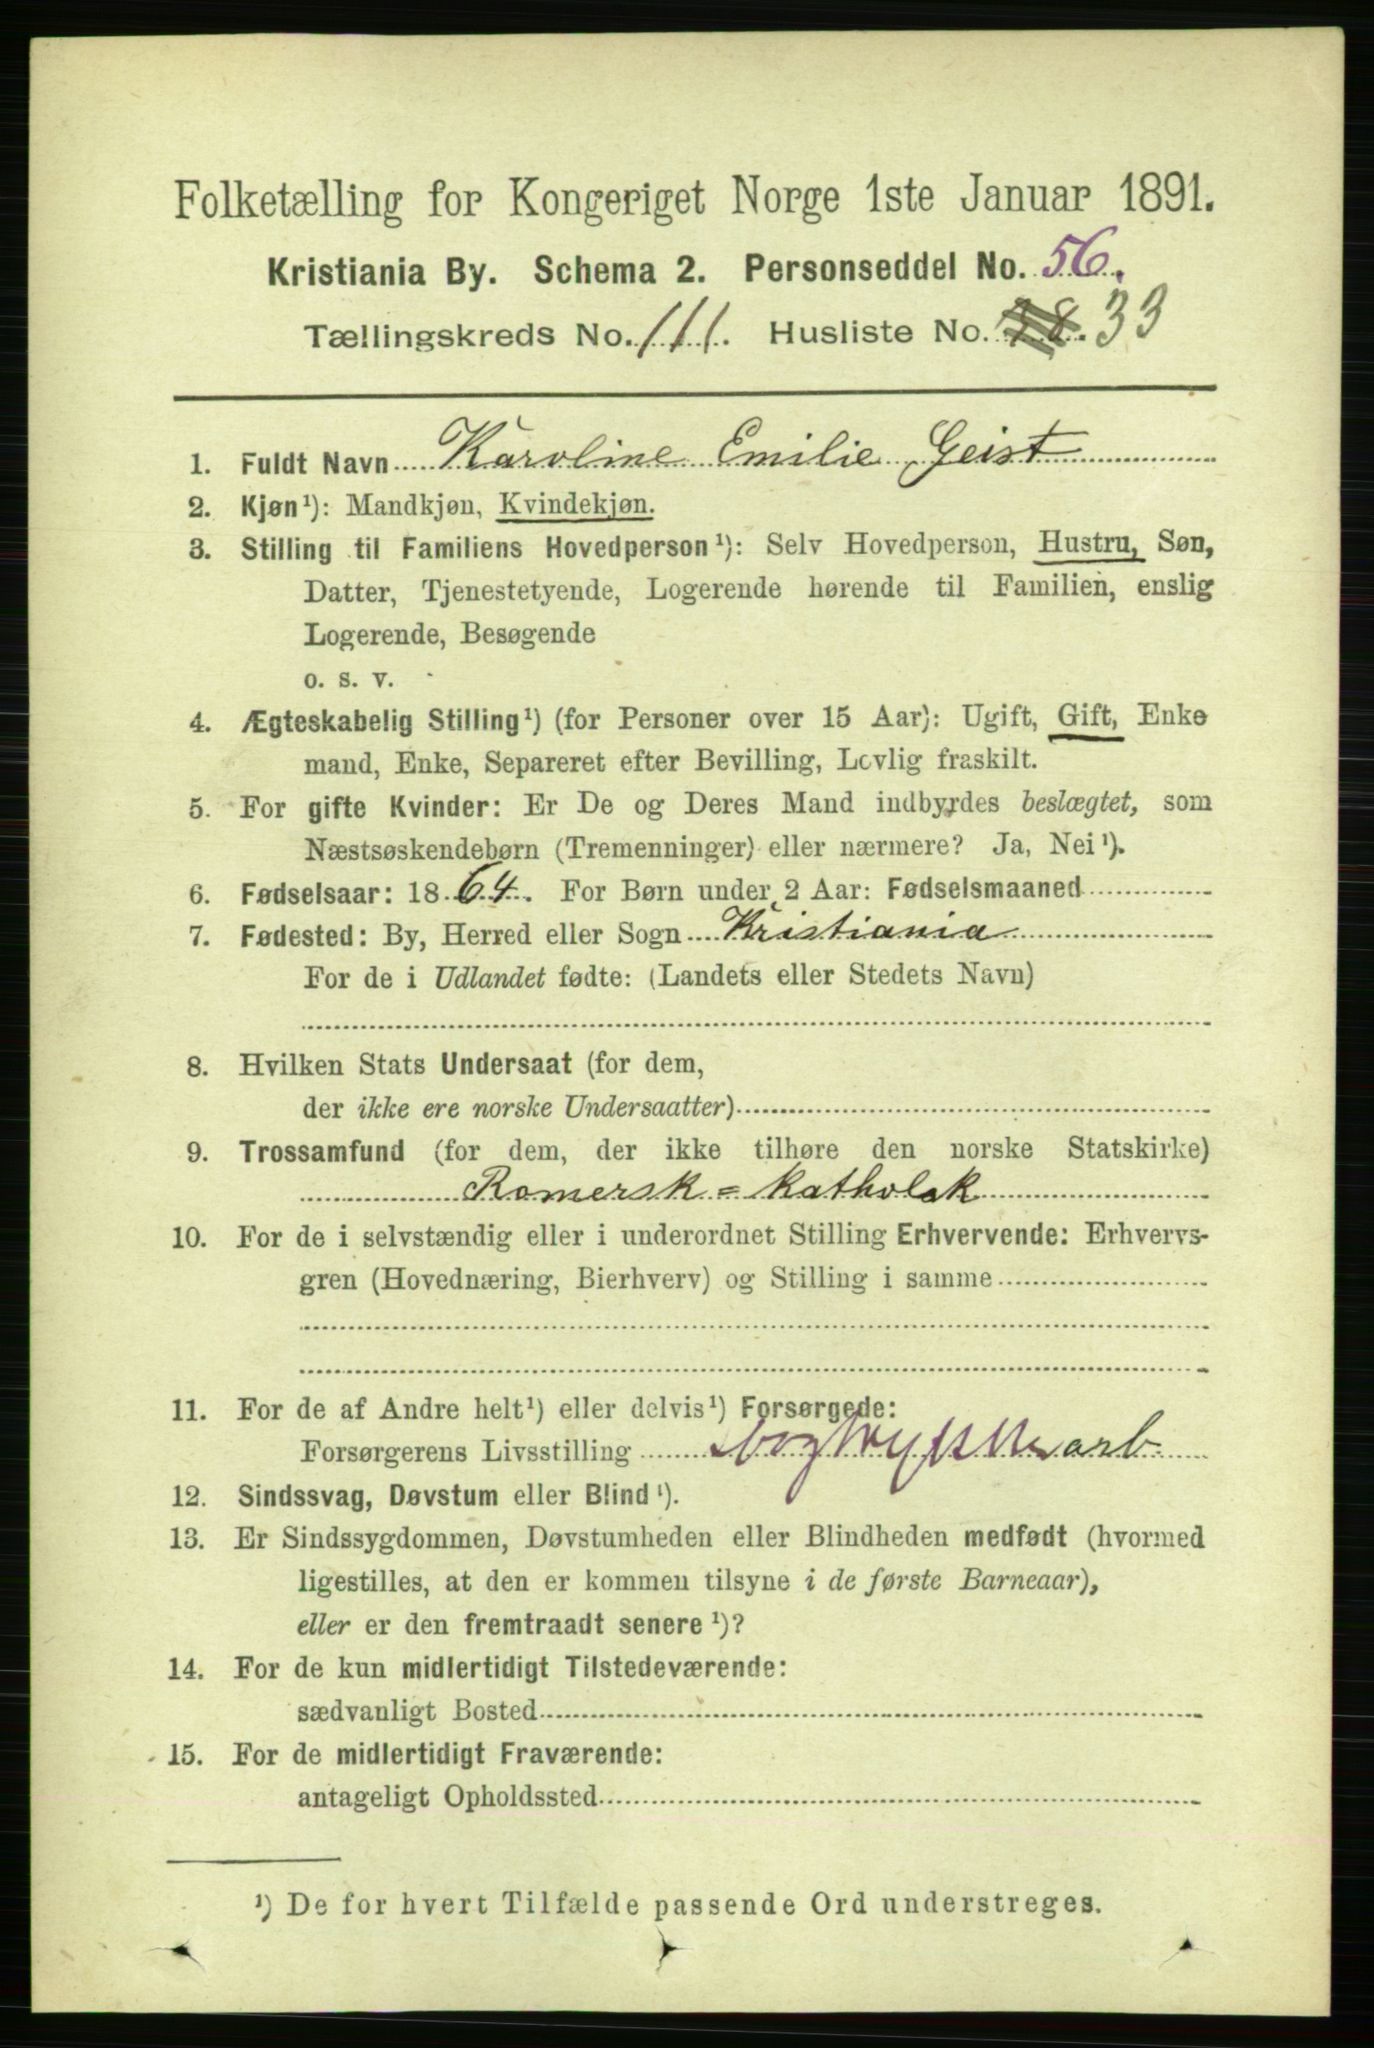 Folketælling for Kongeriget Norge 1ste Januar 1891.
Kristiania By. Schema 2. Personseddel No. 56.
Tællingskreds No. 111. Husliste No. 28. 33
1. Fuldt Navn Karoline Emilie Geist
2. Kjøn¹): Mandkjøn, Kvindekjøn.
3. Stilling til Familiens Hovedperson¹): Selv Hovedperson, Hustru, Søn,
Datter, Tjenestetyende, Logerende hørende til Familien, enslig
Logerende, Besøgende
o. s. v.
4. Ægteskabelig Stilling¹) (for Personer over 15 Aar): Ugift, Gift, Enke
mand, Enke, Separeret efter Bevilling, Lovlig fraskilt.
5. For gifte Kvinder: Er De og Deres Mand indbyrdes beslægtet, som
Næstsøskendebørn (Tremenninger) eller nærmere? Ja, Nei¹).
6. Fødselsaar: 1864. For Børn under 2 Aar: Fødselsmaaned
7. Fødested: By, Herred eller Sogn Kristiania
For de i Udlandet fødte: (Landets eller Stedets Navn)
8. Hvilken Stats Undersaat (for dem,
der ikke ere norske Undersaatter)
9. Trossamfund (for dem, der ikke tilhøre den norske Statskirke)
Romersk=katholsk
10. For de i selvstændig eller i underordnet Stilling Erhvervende: Erhvervs-
gren (Hovednæring, Bierhverv) og Stilling i samme
11. For de af Andre helt¹) eller delvis¹) Forsørgede:
Forsørgerens Livsstilling arb.
12. Sindssvag, Døvstum eller Blind¹).
13. Er Sindssygdommen, Døvstumheden eller Blindheden medfødt (hvormed
ligestilles, at den er kommen tilsyne i de første Barneaar),
eller er den fremtraadt senere¹)?
14. For de kun midlertidigt Tilstedeværende:
sædvanligt Bosted
15. For de midlertidigt Fraværende:
antageligt Opholdssted
¹) De for hvert Tilfælde passende Ord understreges.